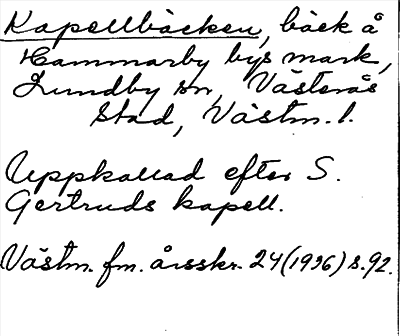 Kapellbäcken, bäck å
Hammarby bys mark,
Lundby sn, Västerås
stad, Västm. l.
Uppkallad efter S.
Gertruds kapell.
Västm. fm. årsskr. 24 (1936) s. 92.